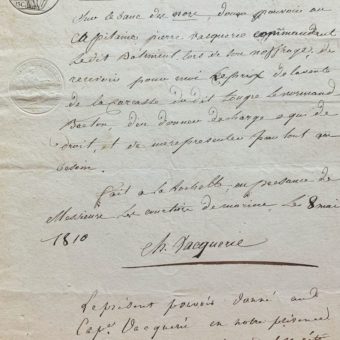 Sur le banc de nore, donne pouvoir au
Capitaine pierre vacquerie commandant
le dit Batiment lors de son noffrage, de
recevoir pour moi le prix de la vente
de la carcasse du dit Lougre le normand
Breton, d'en donner decharge a qui de
droit, et de me representer pour tout au
besoin.
Fait a la Rochelle en presence de
Messieurs les courtiers de marine le 8 mai
1810
Ch. Vacquerie
Le présent pouvoir donné aud
Cap.e Vacquerie en notre présence